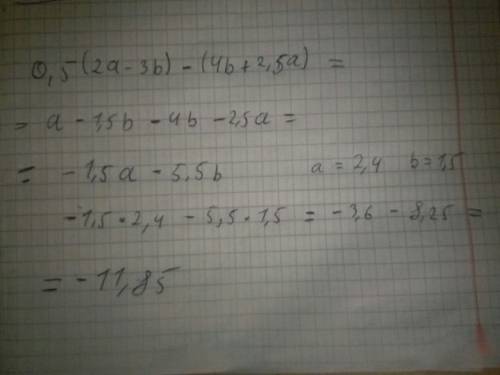 0,5(2a-3b) - (4b+2,5a) =
= a - 1,5b - 4b - 2,5a =
= -1,5a - 5,5b a = 2,4 b = 1,5
-1,5 · 2,4 - 5,5 · 1,5 = -3,6 - 8,25 =
= -11,85